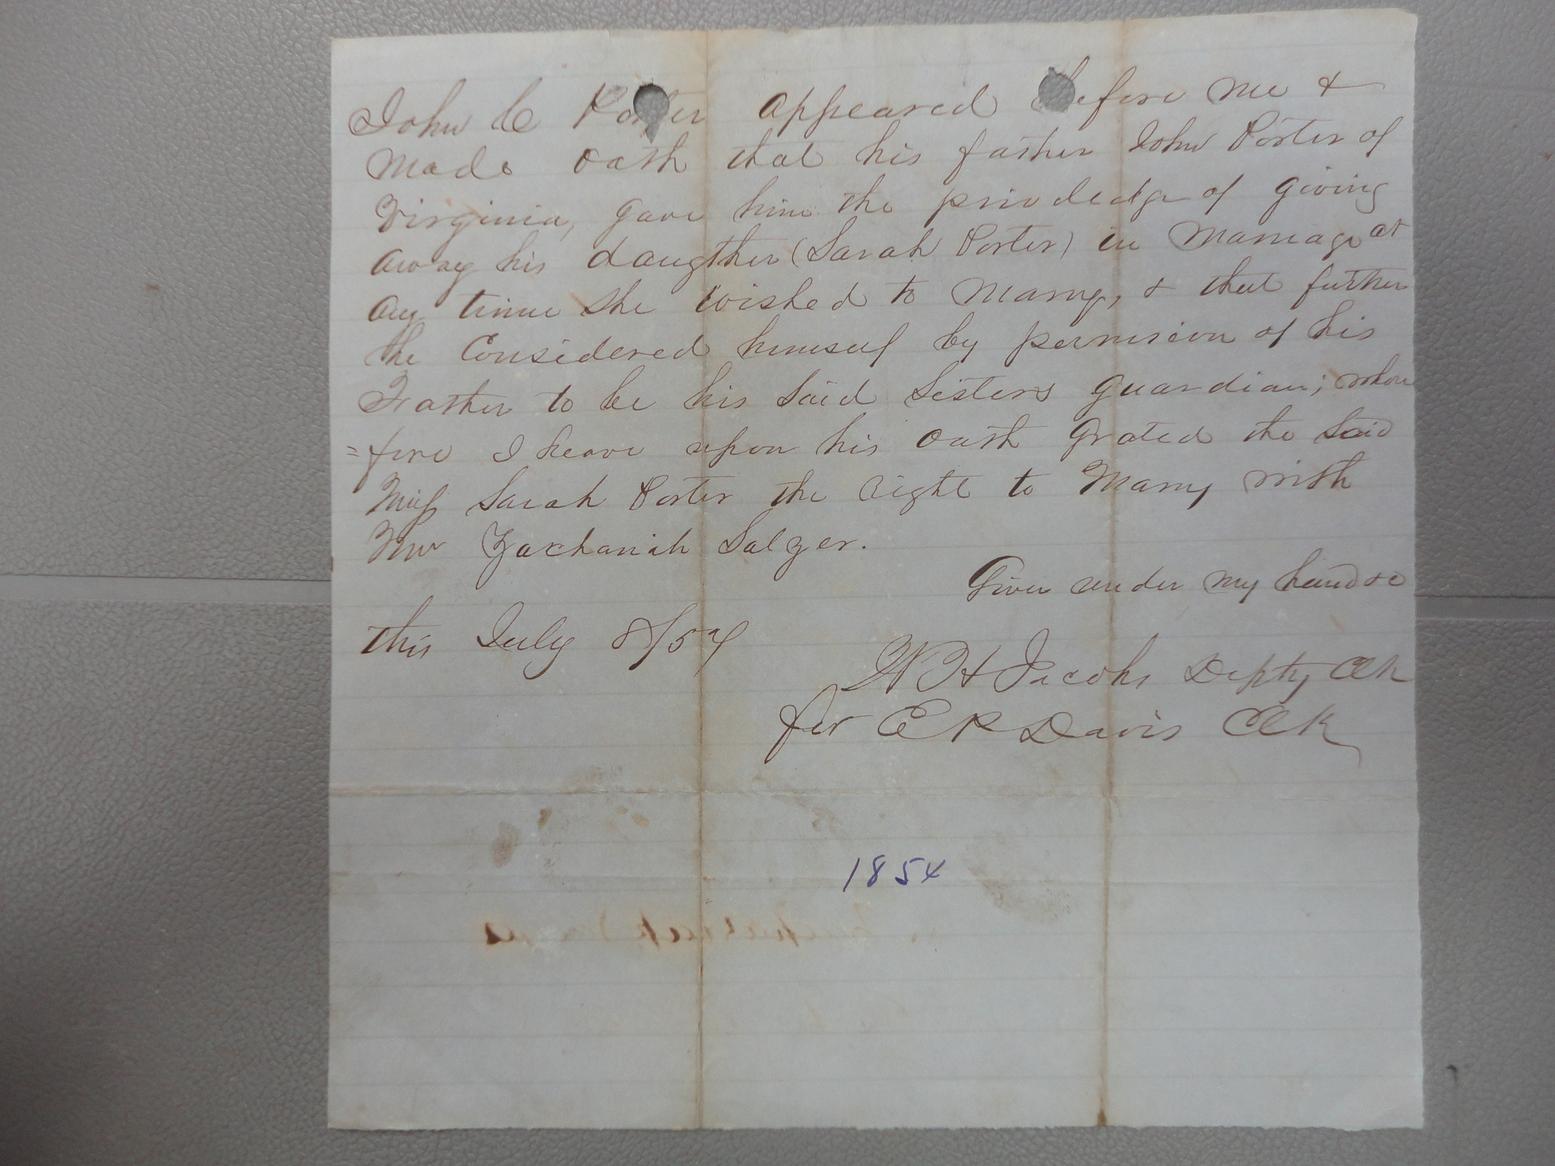 John C Porter appeared before me &
made oath that his father John Porter of
Virginia, gave him the priviledge of giving
away his daugther (Sarah Porter) in Marriage at
any time she wished to Marry, & that further
he Considered himself by permision of his
Father to be his said Sisters guardian; when
=fore I have upon his oath grated the said
Miss Sarah Porter the right to Marry with
Mr Zachariah Salzer.
Given under my hand &c
this July 8/54
W H Jacobs Depty Clk
for E R Davis Clk
1854